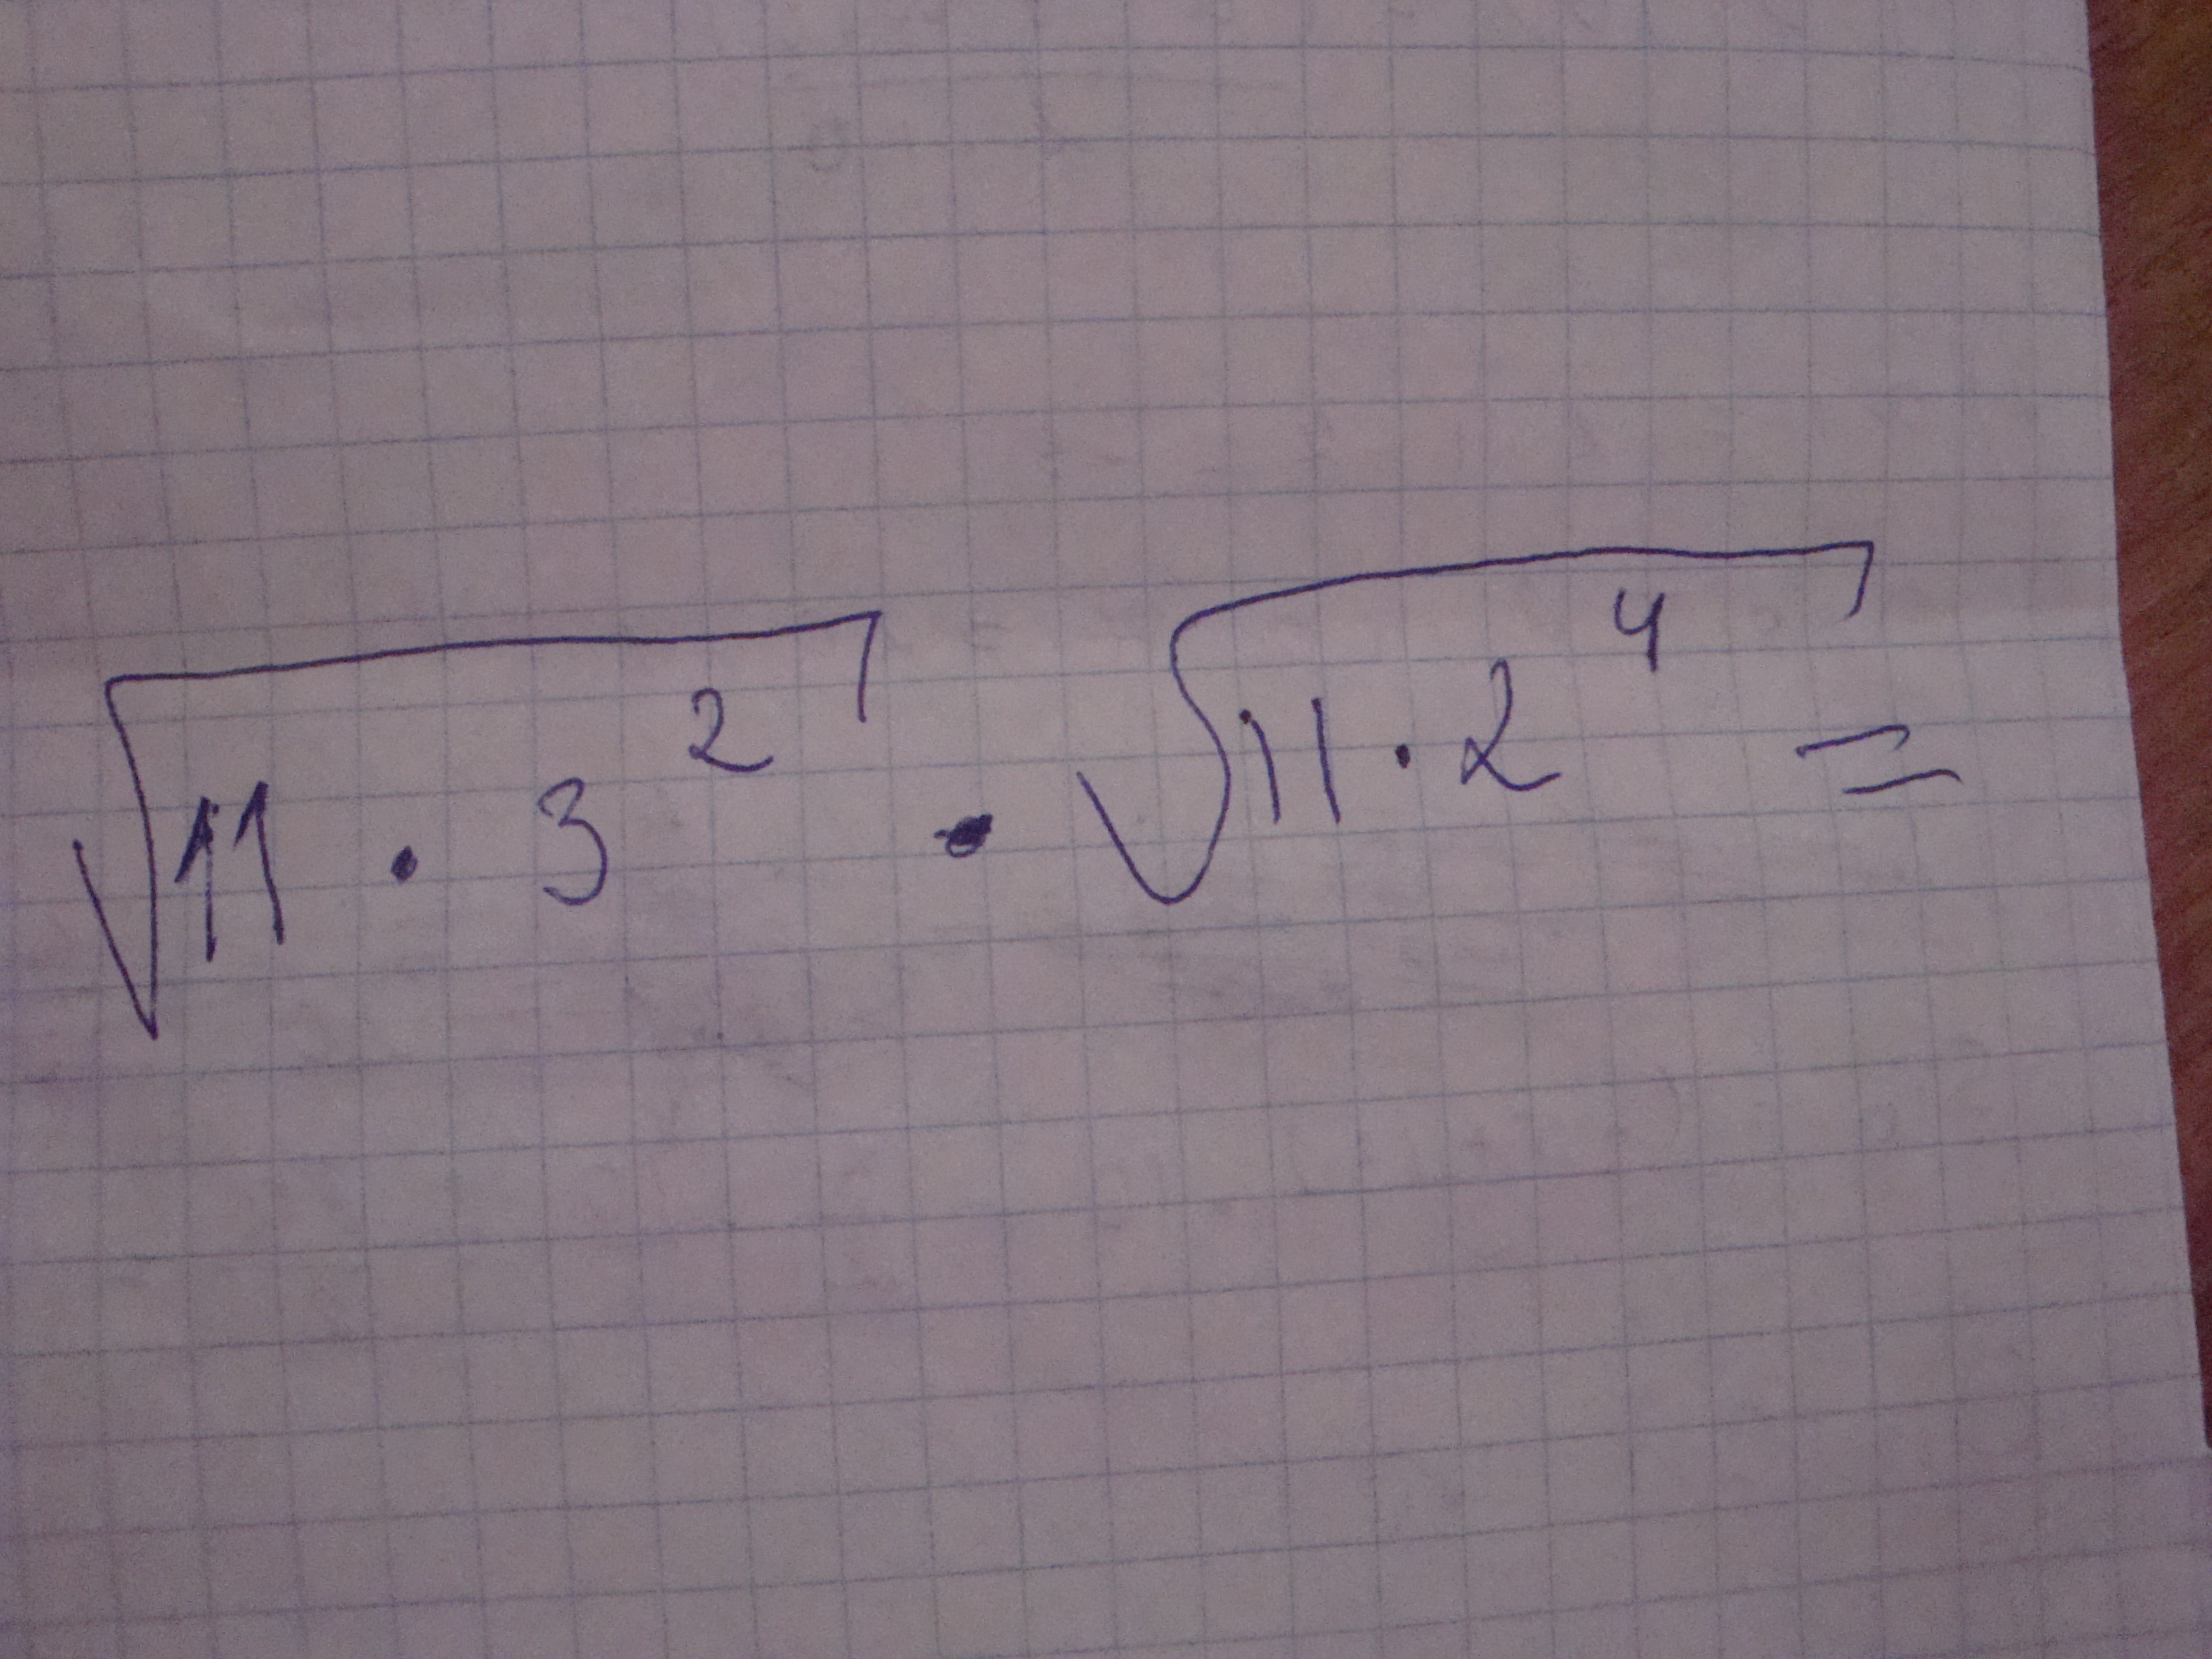 √11 · 3² · √11 · 2⁴ =